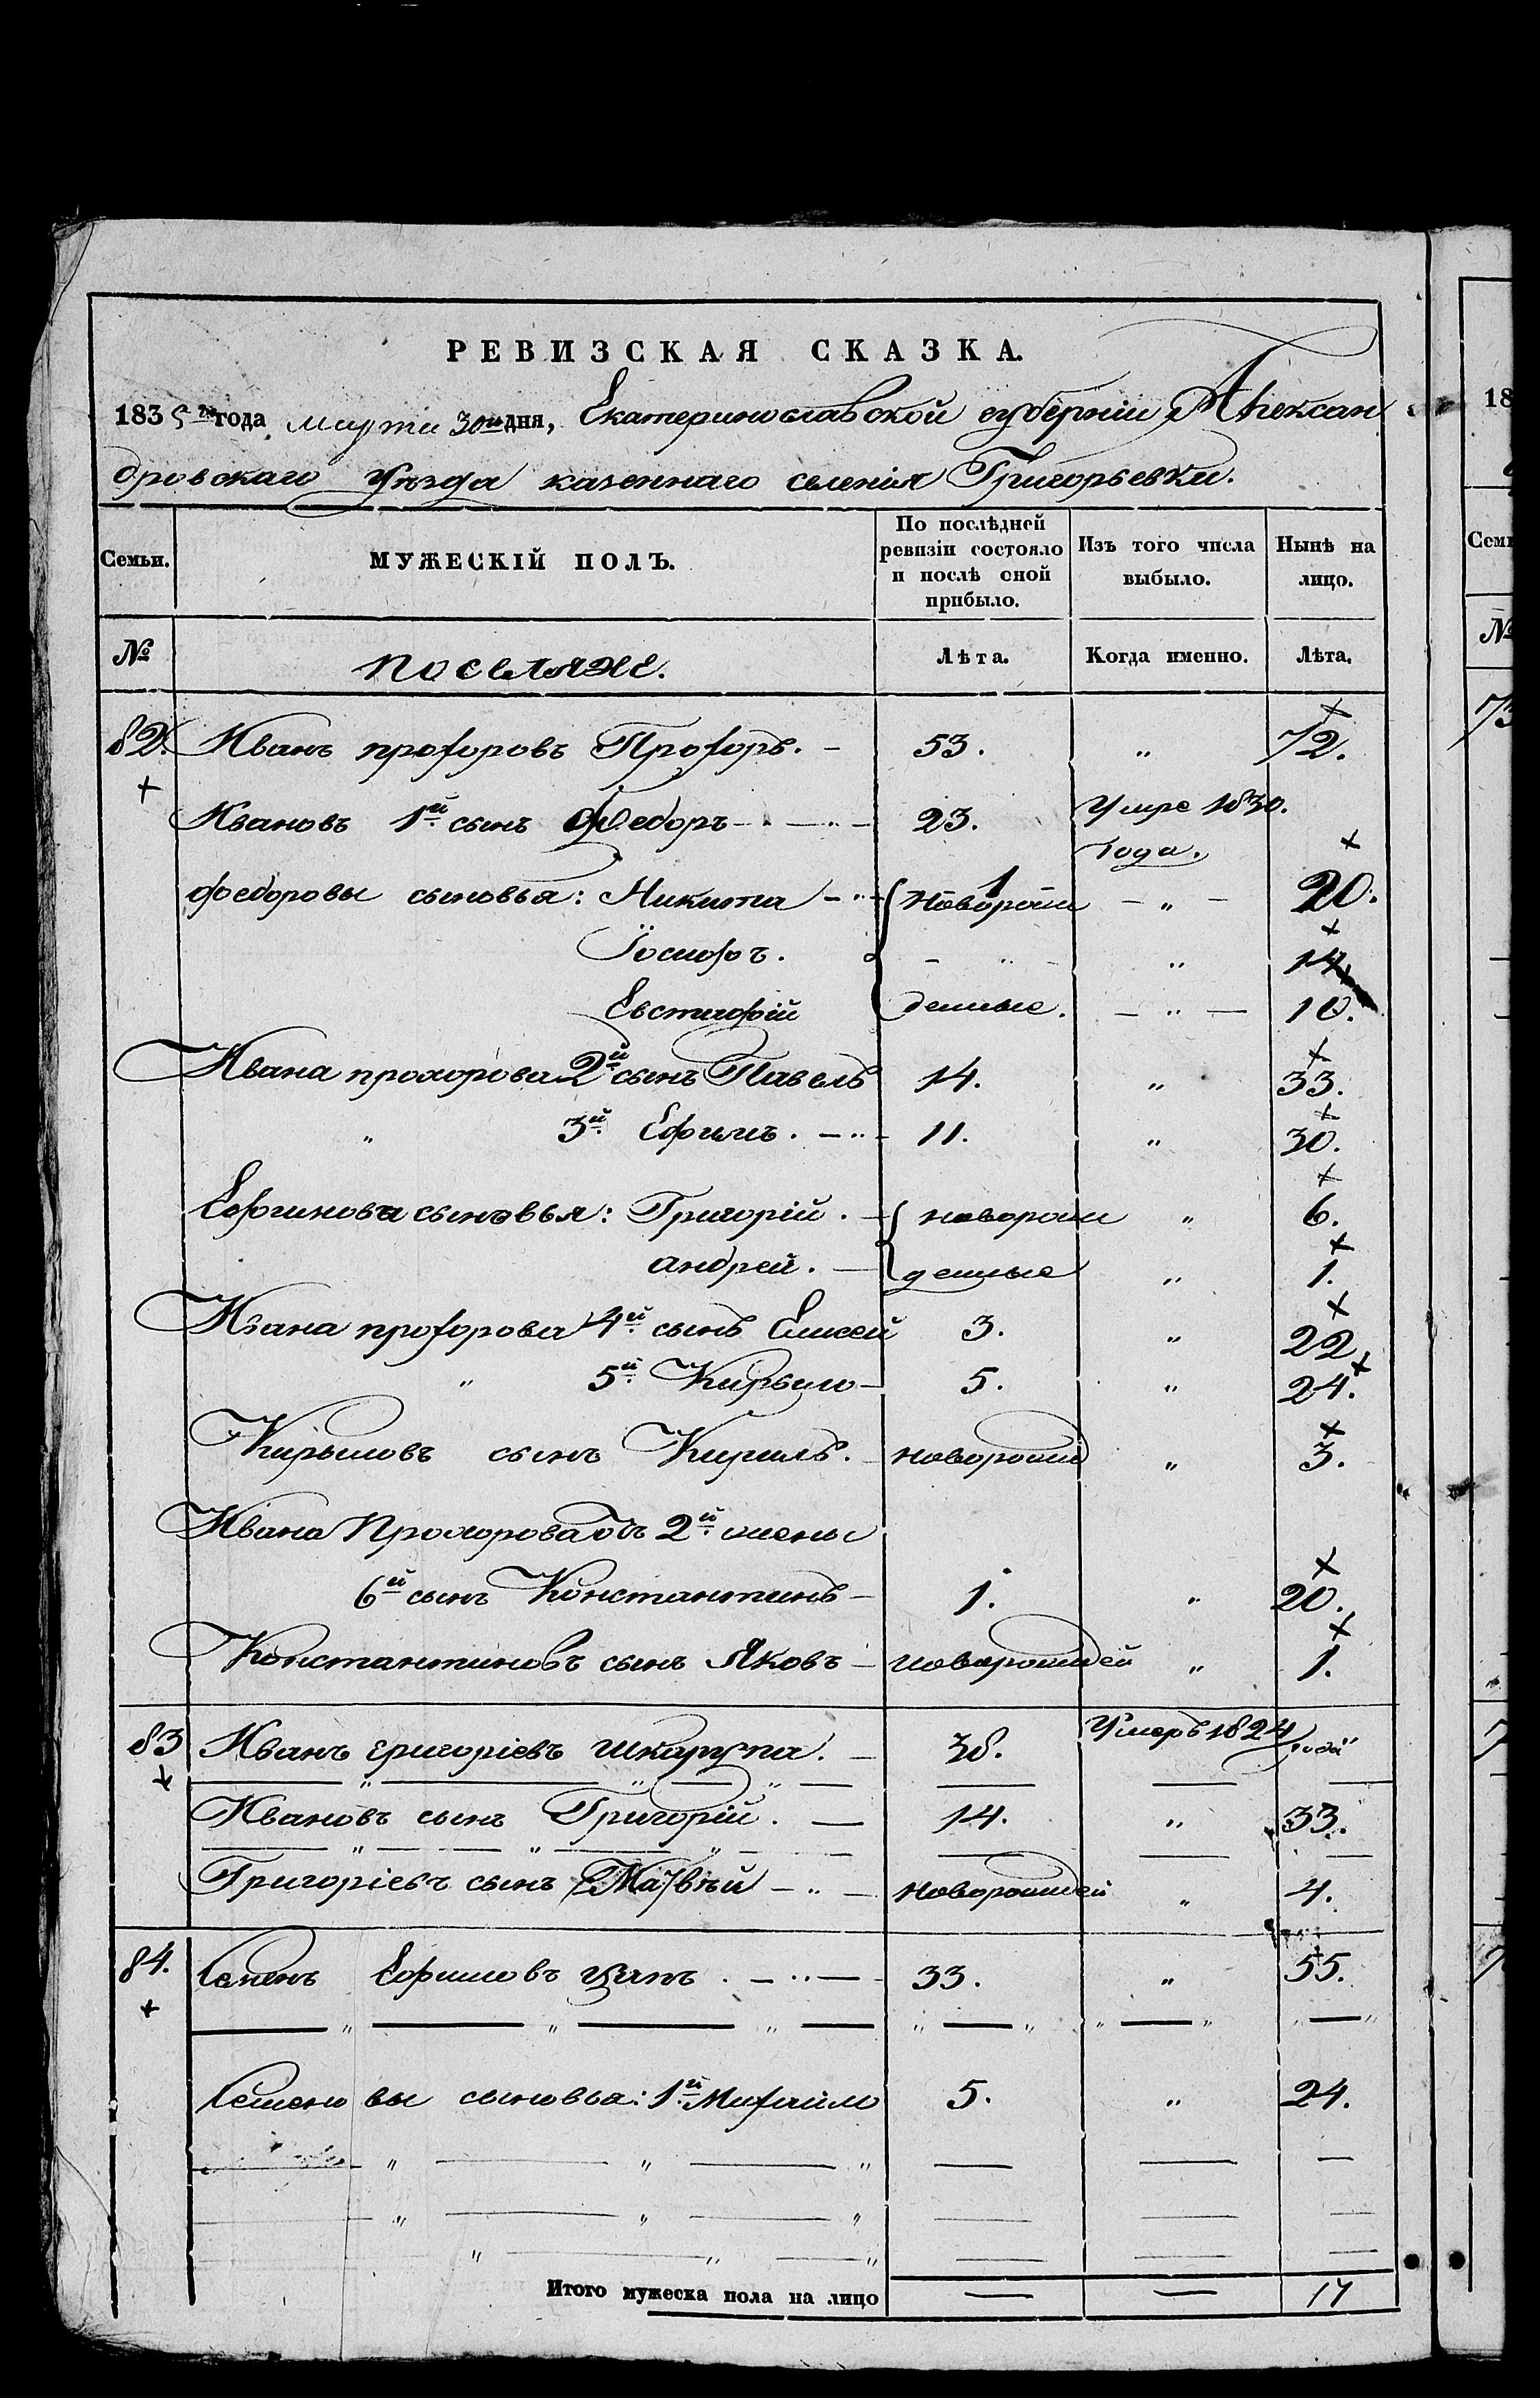 РЕВИЗСКАЯ СКАЗКА.
1835 го года марта 30 й дня, Екатеринославской губерніи Алексан
дровскаго уѣзда казеннаго селенія Григорьевки.
Семьи. МУЖЕСКІЙ ПОЛЪ. По послѣдней ревизіи состояло и послѣ оной прибыло. Изъ того числа выбыло. Нынѣ на лицо.
№ поселяне. Лѣта. Когда именно. Лѣта.
82. Иванъ прохоровъ Прохоръ. 53. " 72.
Ивановъ 1й сынъ Федоръ 23. Умре 1830. года.
Федоровы сыновья: Никита новорож 1 " 20.
Іосифъ. " 14.
Евстафій денные. " 10.
Ивана прохорова 2й сынъ Павелъ 14. " 33.
" 3й Ефимъ. 11. " 30.
Ефимова сыновья: Григорій. новорож " 6.
андрей. денные " 1.
Ивана прохорова 4й сынъ Елисей 3. " 22.
" 5й Кирыло 5. " 24.
Кирыловъ сынъ Кирилъ. " 3.
Ивана Прохорова отъ 2й жены
6й сынъ Константинъ 1. " 20.
Константиновъ сынъ Яковъ " 1.
83 Иванъ григоріевъ шкарупа. 38. Умеръ 1824 года
Ивановъ сынъ Григорій. 14. " 33.
Григоріевъ сынъ " 4.
84. Семенъ Ефимовъ цапъ. 33. " 55.
Семеновы сыновья: 1й Михаило 5. " 24.
Итого мужеска пола на лицо — — 17